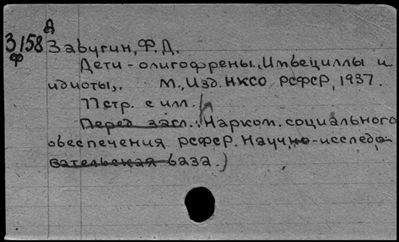 Д
З158 Забугин, Ф.Д.
Ф
Дети-олигофрены. "Имбециллы и
идиоты". М., Изд. НКСО РСФСР, 1937.
77 стр. с илл.
(Перед загл.: Нарком. социального
обеспечения РСФСР. Научно-исследо-
вательская база.)